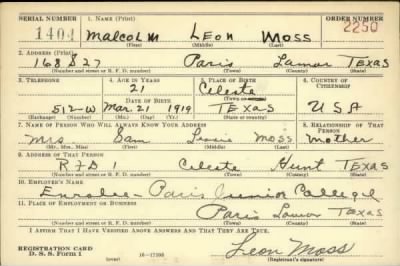 SERIAL NUMBER 1. NAME (Print) ORDER NUMBER
1404 Malcolm Leon Moss 2250
(First) (Middle) (Last)
2. ADDRESS (Print)
168 S 27 Paris Lamar Texas
(Number and street or R. F. D. number) (Town) (County) (State)
3. TELEPHONE 4. AGE IN YEARS 5. PLACE OF BIRTH 6. COUNTRY OF CITIZENSHIP
21 Celeste
DATE OF BIRTH (Town or county)
512-W Mar 21 1919 Texas USA
(Exchange) (Number) (Mo.) (Day) (Yr.) (State or country)
7. NAME OF PERSON WHO WILL ALWAYS KNOW YOUR ADDRESS 8. RELATIONSHIP OF THAT PERSON
Mrs Sam Moss Mother
(Mr., Mrs., Miss) (First) (Middle) (Last)
9. ADDRESS OF THAT PERSON
R F D 1 Celeste Hunt Texas
(Number and street or R. F. D. number) (Town) (County) (State)
10. EMPLOYER'S NAME
Paris Junior College
11. PLACE OF EMPLOYMENT OR BUSINESS
Paris Lamar Texas
(Number and street or R. F. D. number) (Town) (County) (State)
I AFFIRM THAT I HAVE VERIFIED ABOVE ANSWERS AND THAT THEY ARE TRUE.
REGISTRATION CARD Leon Moss
D. S. S. FORM 1 (over) 16-17105 (Registrant's signature)